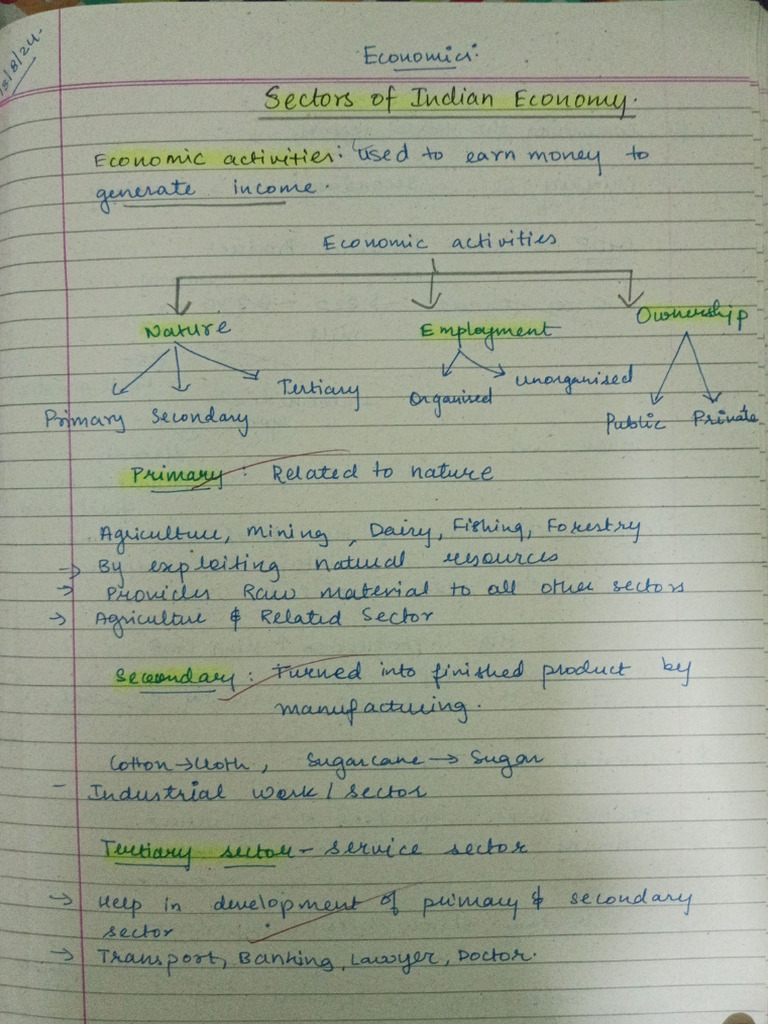 13/8/24.
Economics.
Sectors of Indian Economy.
Economic activities: used to earn money to
generate income.
Economic activities
Nature Employment Ownership
Primary Secondary Tertiary Organised Unorganised Public Private
Primary: Related to nature
Agriculture, Mining, Dairy, Fishing, Forestry
→ By exploiting natural resources
→ Provides Raw material to all other sectors
→ Agriculture & Related Sector
Secondary: Turned into finished product by
manufacturing.
Cotton → Cloth, Sugarcane → Sugar
- Industrial work / sector
Tertiary sector - service sector
→ Help in development of primary & secondary
sector
→ Transport, Banking, Lawyer, Doctor.